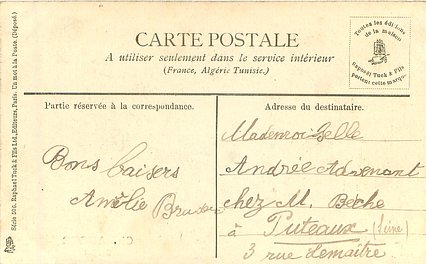 CARTE POSTALE
A utiliser seulement dans le service intérieur
(France, Algérie Tunisie.)
Toutes les éditions
de la maison
Raphael Tuck & Fils
portent cette marque
Partie réservée à la correspondance.
Bons baisers
Amélie
Adresse du destinataire.
Mademoiselle
Andrée
chez M. Bèche
à Puteaux (Seine)
3 rue Lemaître
Série 506. Raphael Tuck & Fils Ltd, Editeurs, Paris. Un mot à la Poste (Déposé.)